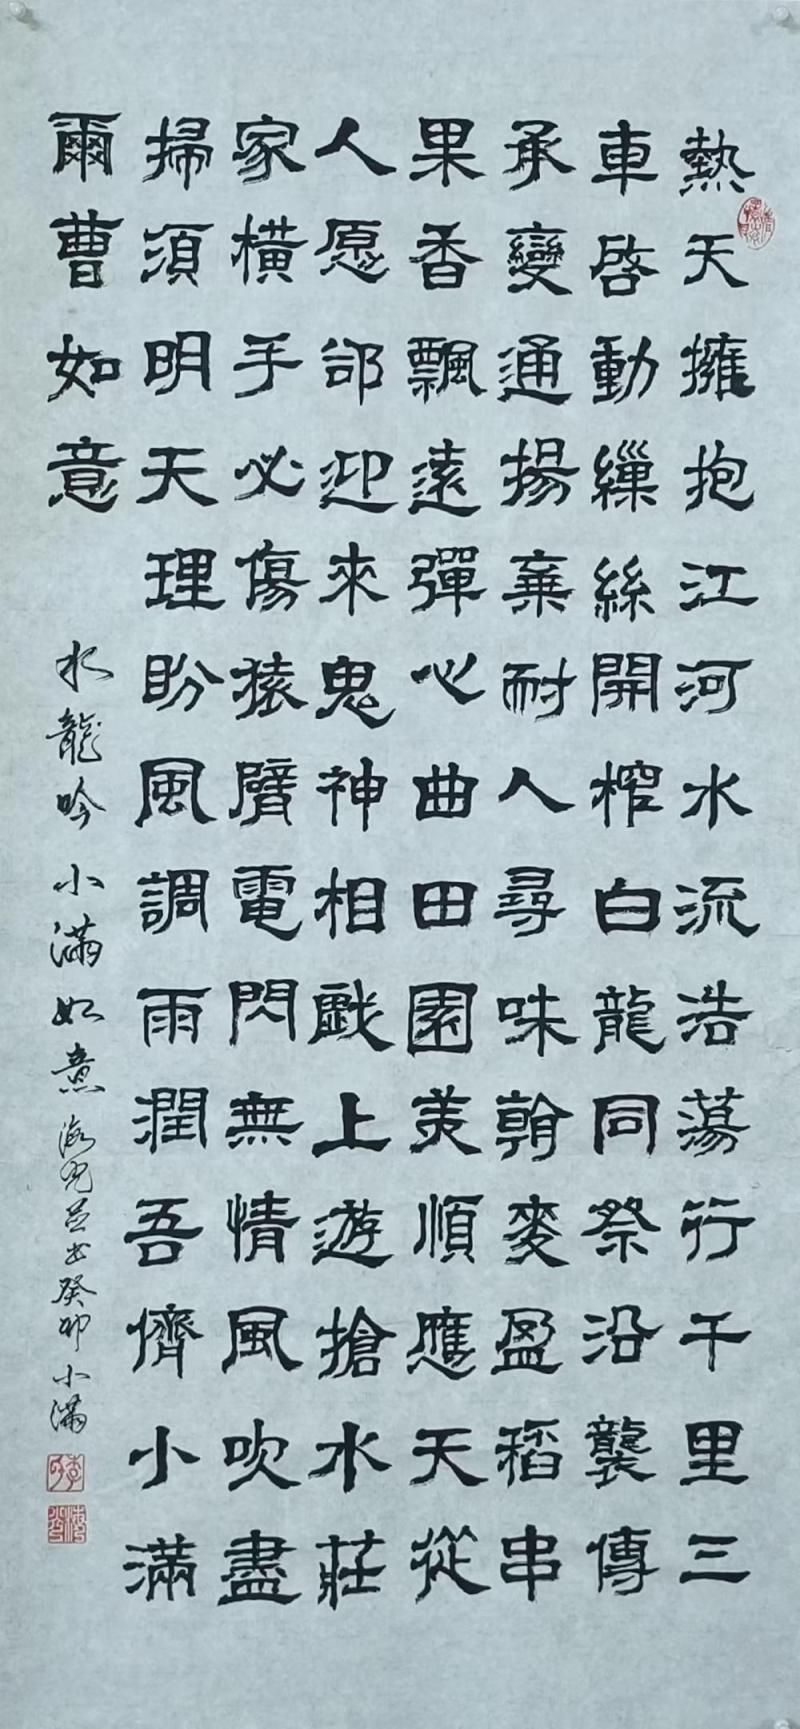 熱天擁抱江河水流浩蕩行千里三
車啓動繅絲開榨白龍同祭沿襲傳
承變通揚棄耐人尋味翰麥盈稻串
果香飄遠彈心曲田園美順應天從
人愿郤迎來鬼神相戲上遊搶水莊
家橫手必傷猿臂電閃無情風吹盡
掃須明天理盼風調雨潤吾儕小滿
爾曹如意
水龍吟 小滿如意 海光并书癸卯小滿